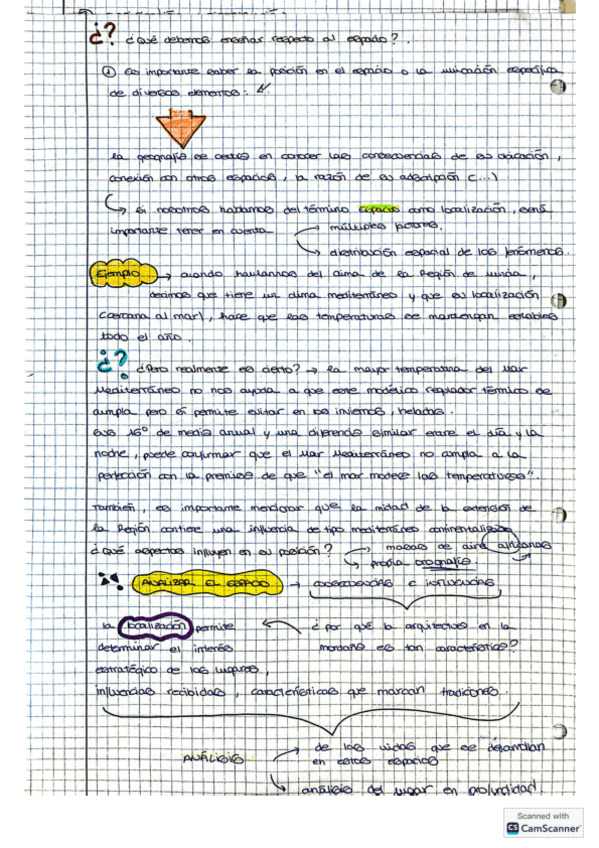 ¿? ¿Qué debemos enseñar respecto al espacio?.
① Es importante saber la posición en el espacio o la ubicación específica
de diversos elementos:
la geografía se centra en conocer las consecuencias de su ubicación,
conexión con otros espacios, la razón de su adscripción (...)
↳ Si nosotros hablamos del término espacio como localización, será
importante tener en cuenta → múltiples factores.
↳ distribución espacial de los fenómenos.
Ejemplo → cuando hablamos del clima de la Región de Murcia,
decimos que tiene un clima mediterráneo y que su localización
(cercana al mar), hace que las temperaturas se mantengan estables
todo el año.
¿? ¿Pero realmente es cierto? → la mayor temperatura del Mar
Mediterráneo no nos ayuda a que este modélico regulador térmico se
cumpla pero sí permite evitar en los inviernos, heladas.
Sus 16° de media anual y una diferencia similar entre el día y la
noche, puede confirmar que el Mar Mediterráneo no cumpla a la
perfección con la premisa de que "el mar modece las temperaturas".
También, es importante mencionar que la mitad de la extensión de
la Región contiene una influencia de tipo mediterráneo continentalizado
¿Qué aspectos influyen en su posición? → masas de aire africanas
↳ propia orografía.
ANALIZAR EL ESPACIO → consecuencias e influencias
la localización permite ← ¿por qué la arquitectura en la
determinar el interés montaña es tan característica?
estratégico de los lugares,
influencias recibidas, características que marcan tradiciones.
ANÁLISIS → de las vidas que se desarrollan
en estos espacios
↳ análisis del lugar en profundidad
Scanned with
CS CamScanner